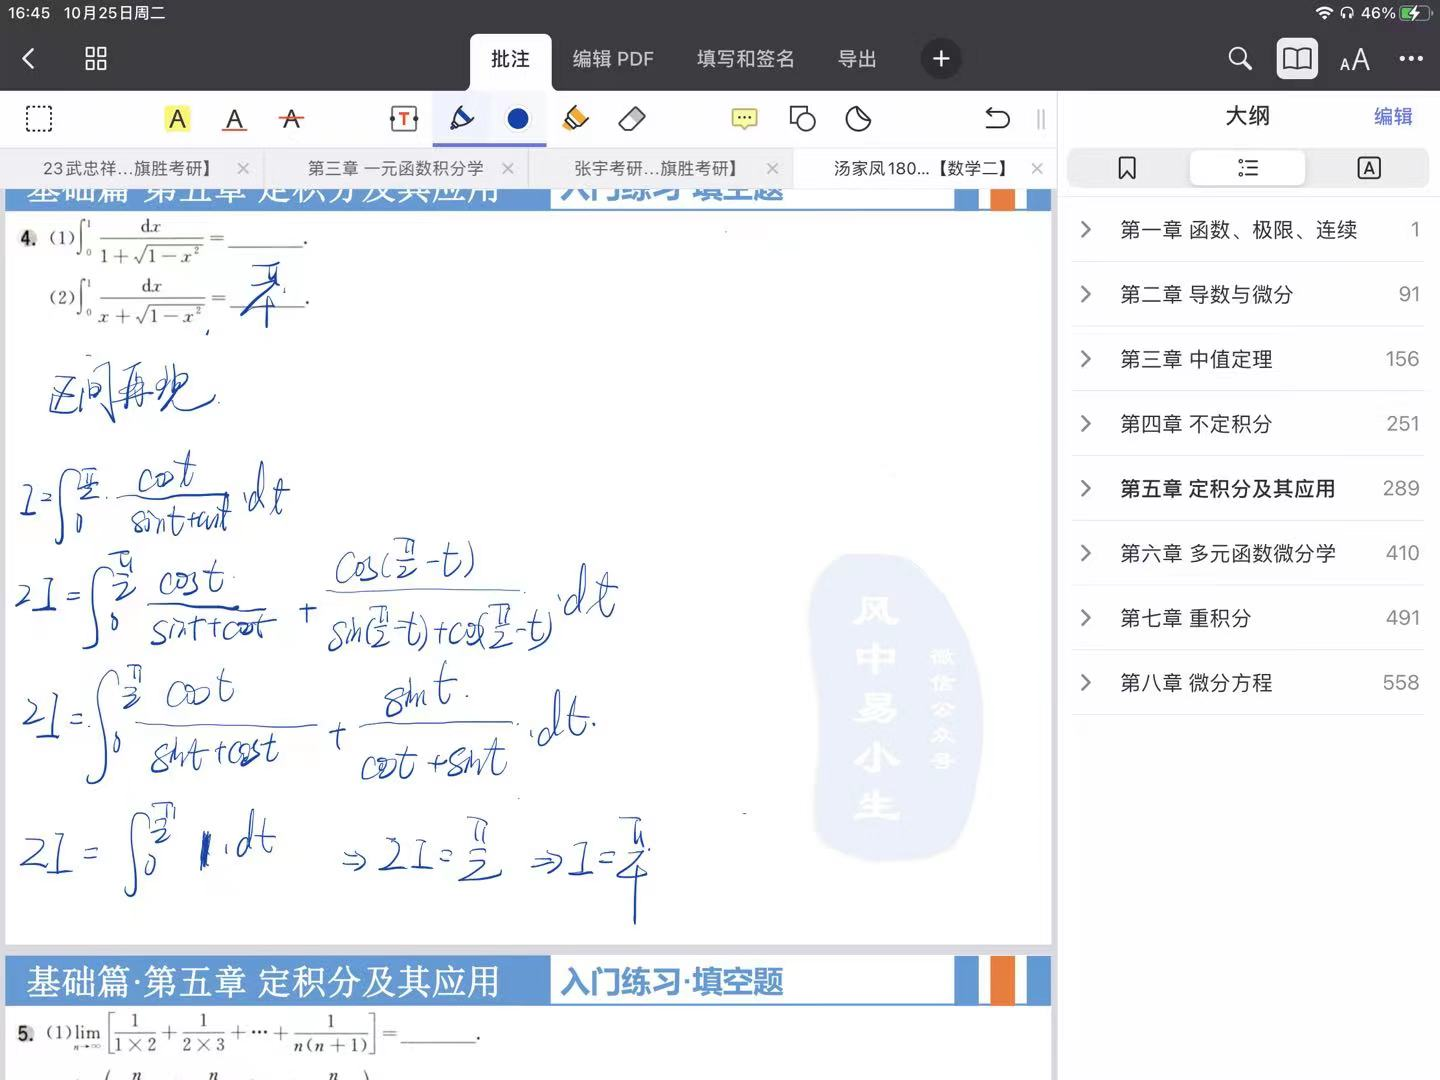 16:45 10月25日周二 46%
批注 编辑 PDF 填写和签名 导出
大纲 编辑
23武忠祥...旗胜考研】 第三章 一元函数积分学 张宇考研...旗胜考研】 汤家凤180...【数学二】
基础篇·第五章 定积分及其应用 入门练习·填空题
4. (1)∫₀¹ dx/(1+√(1−x²)) = ______.
(2)∫₀¹ dx/(x+√(1−x²)) = π/4.
区间再现
I=∫₀^(π/2) cost/(sint+cost) ·dt
2I=∫₀^(π/2) cost/(sint+cost) + cos(π/2−t)/(sin(π/2−t)+cos(π/2−t)) ·dt
2I=∫₀^(π/2) cost/(sint+cost) + sint/(cost+sint) ·dt.
2I=∫₀^(π/2) 1·dt ⇒2I=π/2 ⇒I=π/4.
风中易小生
微信公众号
基础篇·第五章 定积分及其应用 入门练习·填空题
5. (1)lim n→∞ [1/(1×2)+1/(2×3)+···+1/(n(n+1))]=______.
第一章 函数、极限、连续 1
第二章 导数与微分 91
第三章 中值定理 156
第四章 不定积分 251
第五章 定积分及其应用 289
第六章 多元函数微分学 410
第七章 重积分 491
第八章 微分方程 558